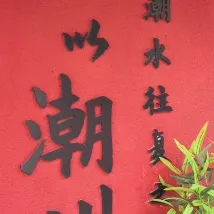 潮水往复
以潮